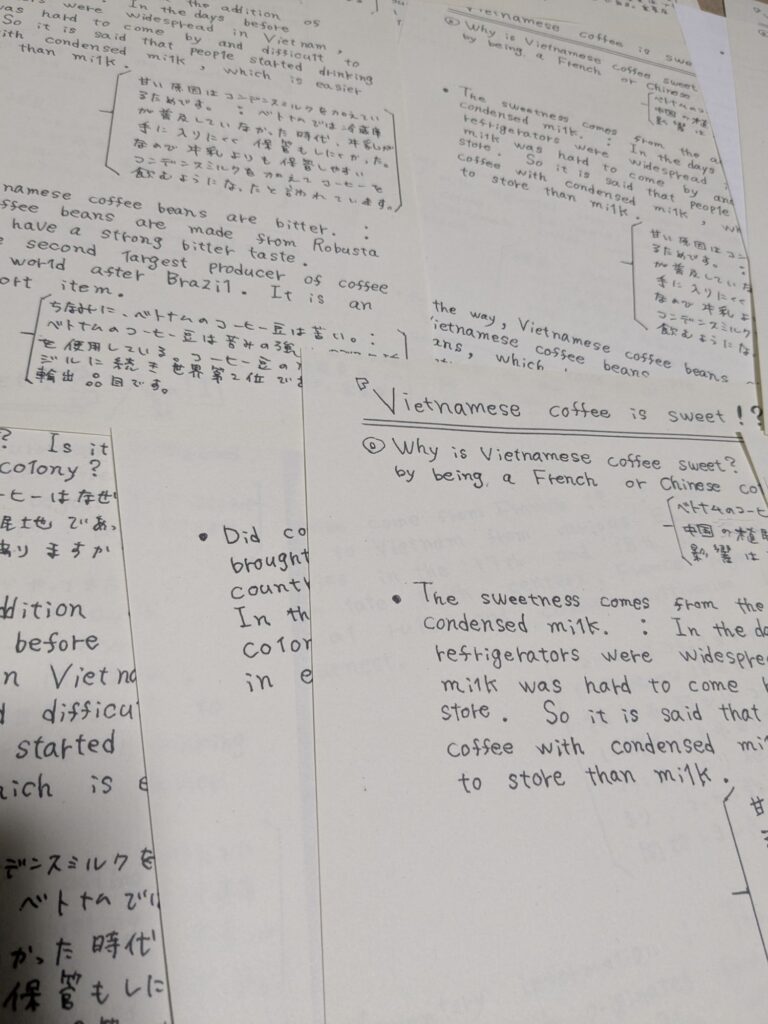 the addition of
were
In the days before
widespread in Vietnam,
was hard to come by and difficult to
So it is said that people started drinking
with condensed milk, which is easier
than milk.
甘い原因はコンデンスミルクを加えてい
るためです。: ベトナムでは冷蔵庫
が普及していなかった時代、牛乳が
手に入りにくく 保管もしにくかった。
なので牛乳よりも保管しやすい
コンデンスミルクを加えてコーヒーを
飲むようになったと言われています。
namese coffee beans are bitter. :
ffee beans are made from Robusta
have a strong bitter taste.
second largest producer of coffee
world after Brazil. It is an
ort item.
ちなみに、ベトナムのコーヒー豆は苦い。:
ベトナムのコーヒー豆は苦みの強
を使用している。コーヒー豆の
ジルに続き世界第2位で
輸出品目です。
Vietnamese coffee is swe
◎ Why is Vietnamese coffee sweet
by being, a French or Chinese
ベトナムのコ
中国の植
影響は
• The sweetness comes from the a
condensed milk. : In the days
refrigerators were widespread i
milk was hard to come by and
store. So it is said that people
coffee with condensed milk, wh
to store than milk.
甘い原因はコン
るためです。 :
が普及していな
手に入りにくく
なので牛乳よ
コンデンスミルク
飲むようにな
the way, Vietnamese coffee beans
ietnamese coffee beans
ans, which
? Is it
colony?
ーヒーはなぜ
民地であっ
ありますか
ddition
before
n Vietna
d difficul
started
hich is e
デンスミルクを
ベトナムでは
かった時代
保管もしに
• Did co
brought
count
In th
color
in e
『Vietnamese coffee is sweet!?
◎ Why is Vietnamese coffee sweet?
by being, a French or Chinese col
ベトナムのコーヒ
中国の植民
影響は
• The sweetness comes from the
condensed milk. : In the da
refrigerators were widesprea
milk was hard to come b
store. So it is said that
coffee with condensed mil
to store than milk.
甘